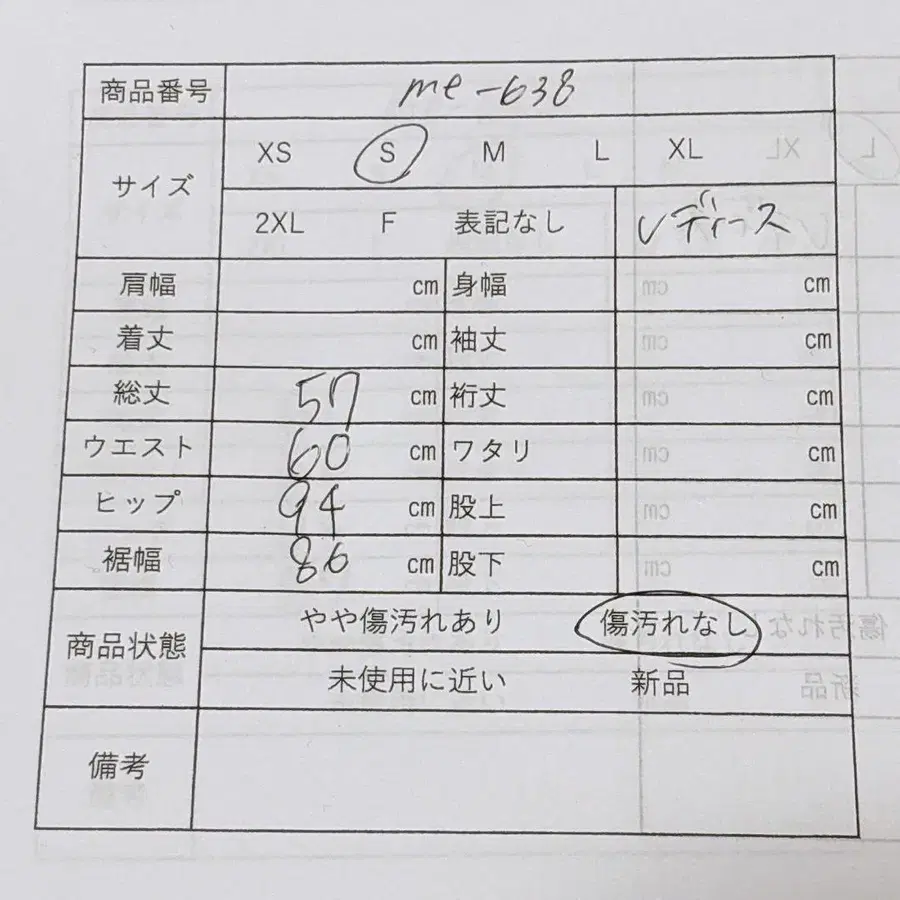 商品番号 me-638
サイズ XS S M L XL
2XL F 表記なし レディース
肩幅 cm 身幅 cm
着丈 cm 袖丈 cm
総丈 57 cm 裄丈 cm
ウエスト 60 cm ワタリ cm
ヒップ 94 cm 股上 cm
裾幅 86 cm 股下 cm
商品状態 やや傷汚れあり 傷汚れなし
未使用に近い 新品
備考